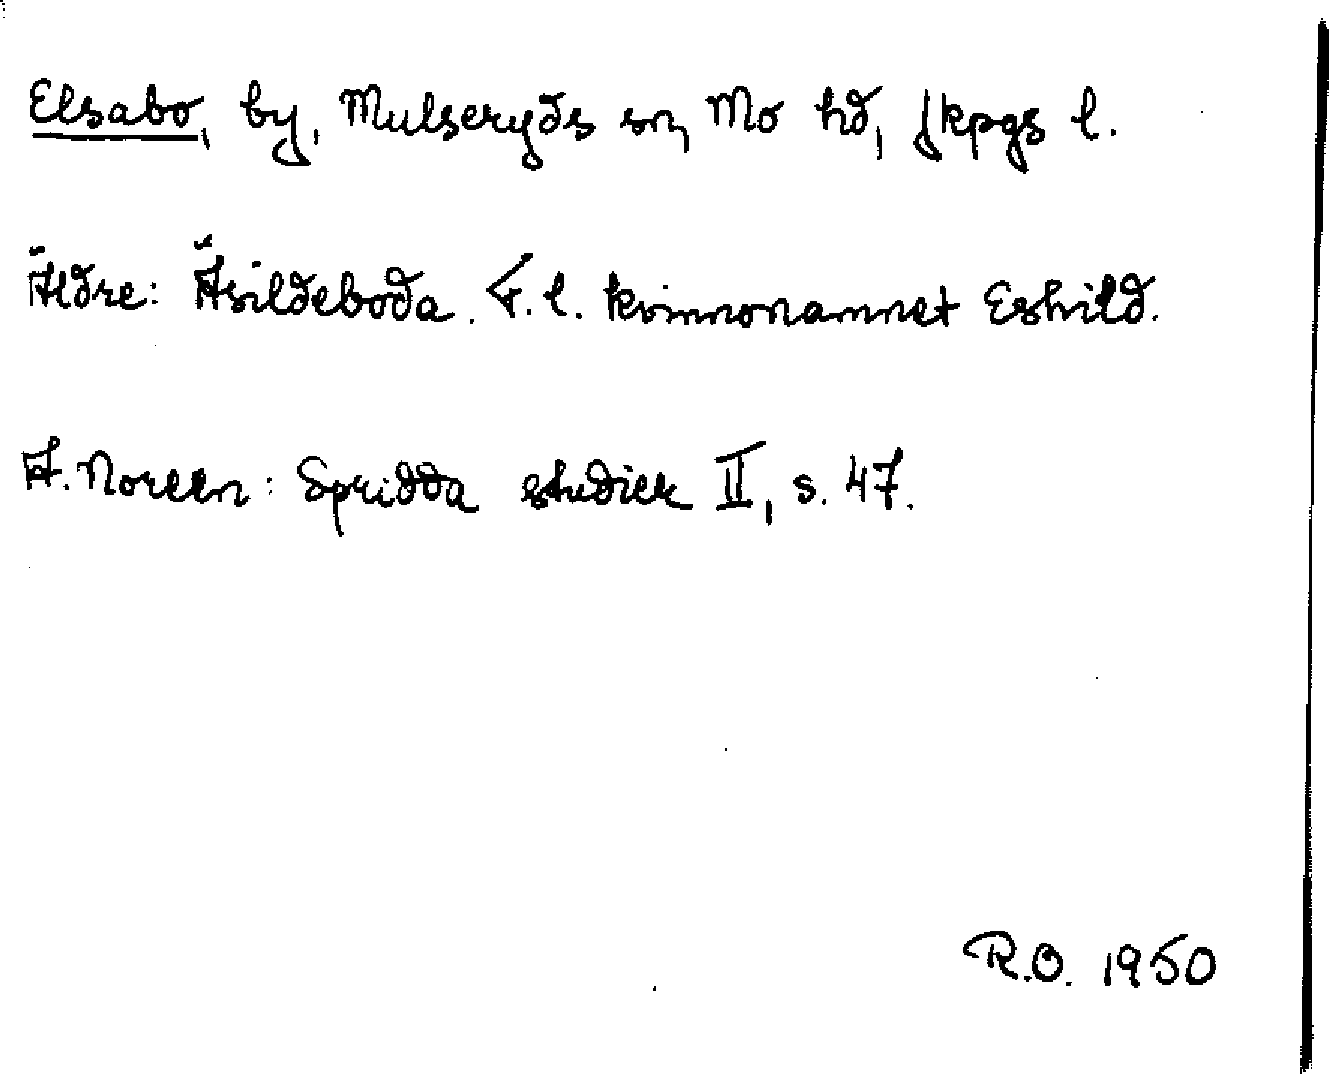 Elsabo, by, Mulseryds sn, Mo hd, Jkpgs l.
Äldre: Äsildeboda. F. l. kvinnonamnet Eshild.
A. Noreen: Spridda studier II, s. 47.
R.O. 1950